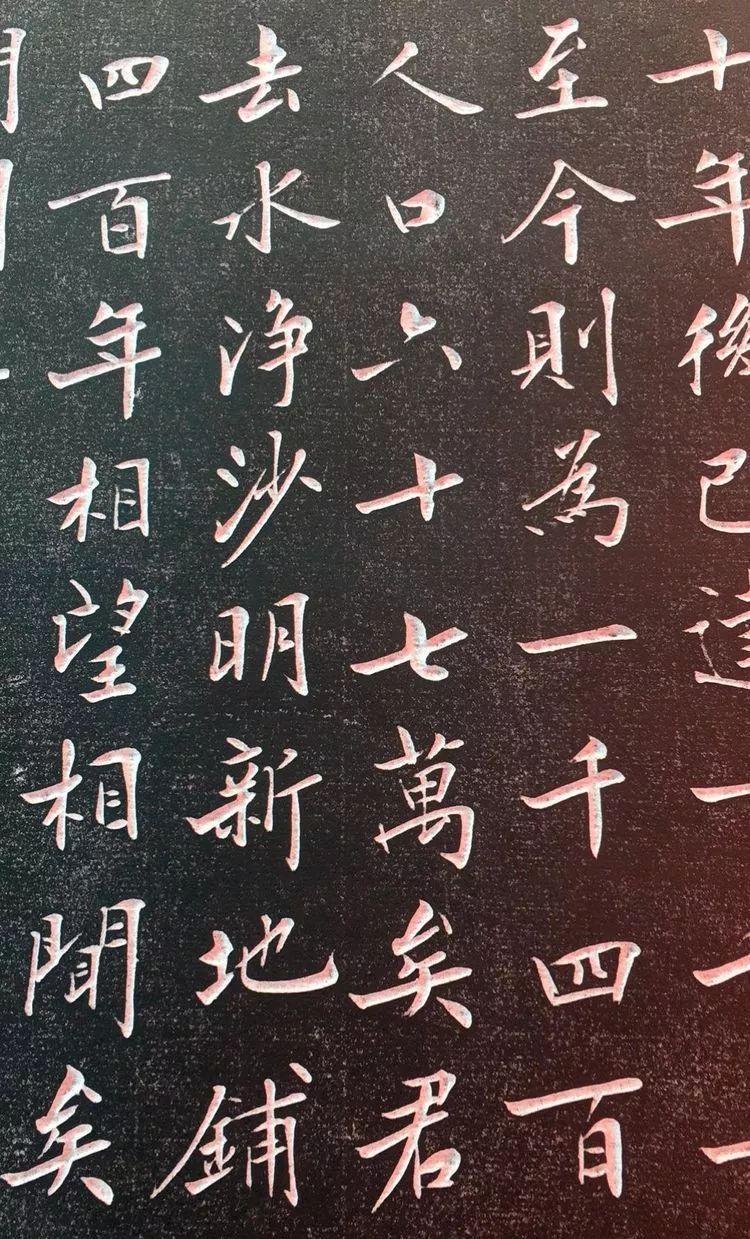 十年後已達
至今則為一千四百
人口六十七萬矣君
去水净沙明新地鋪
四百年相望相聞矣